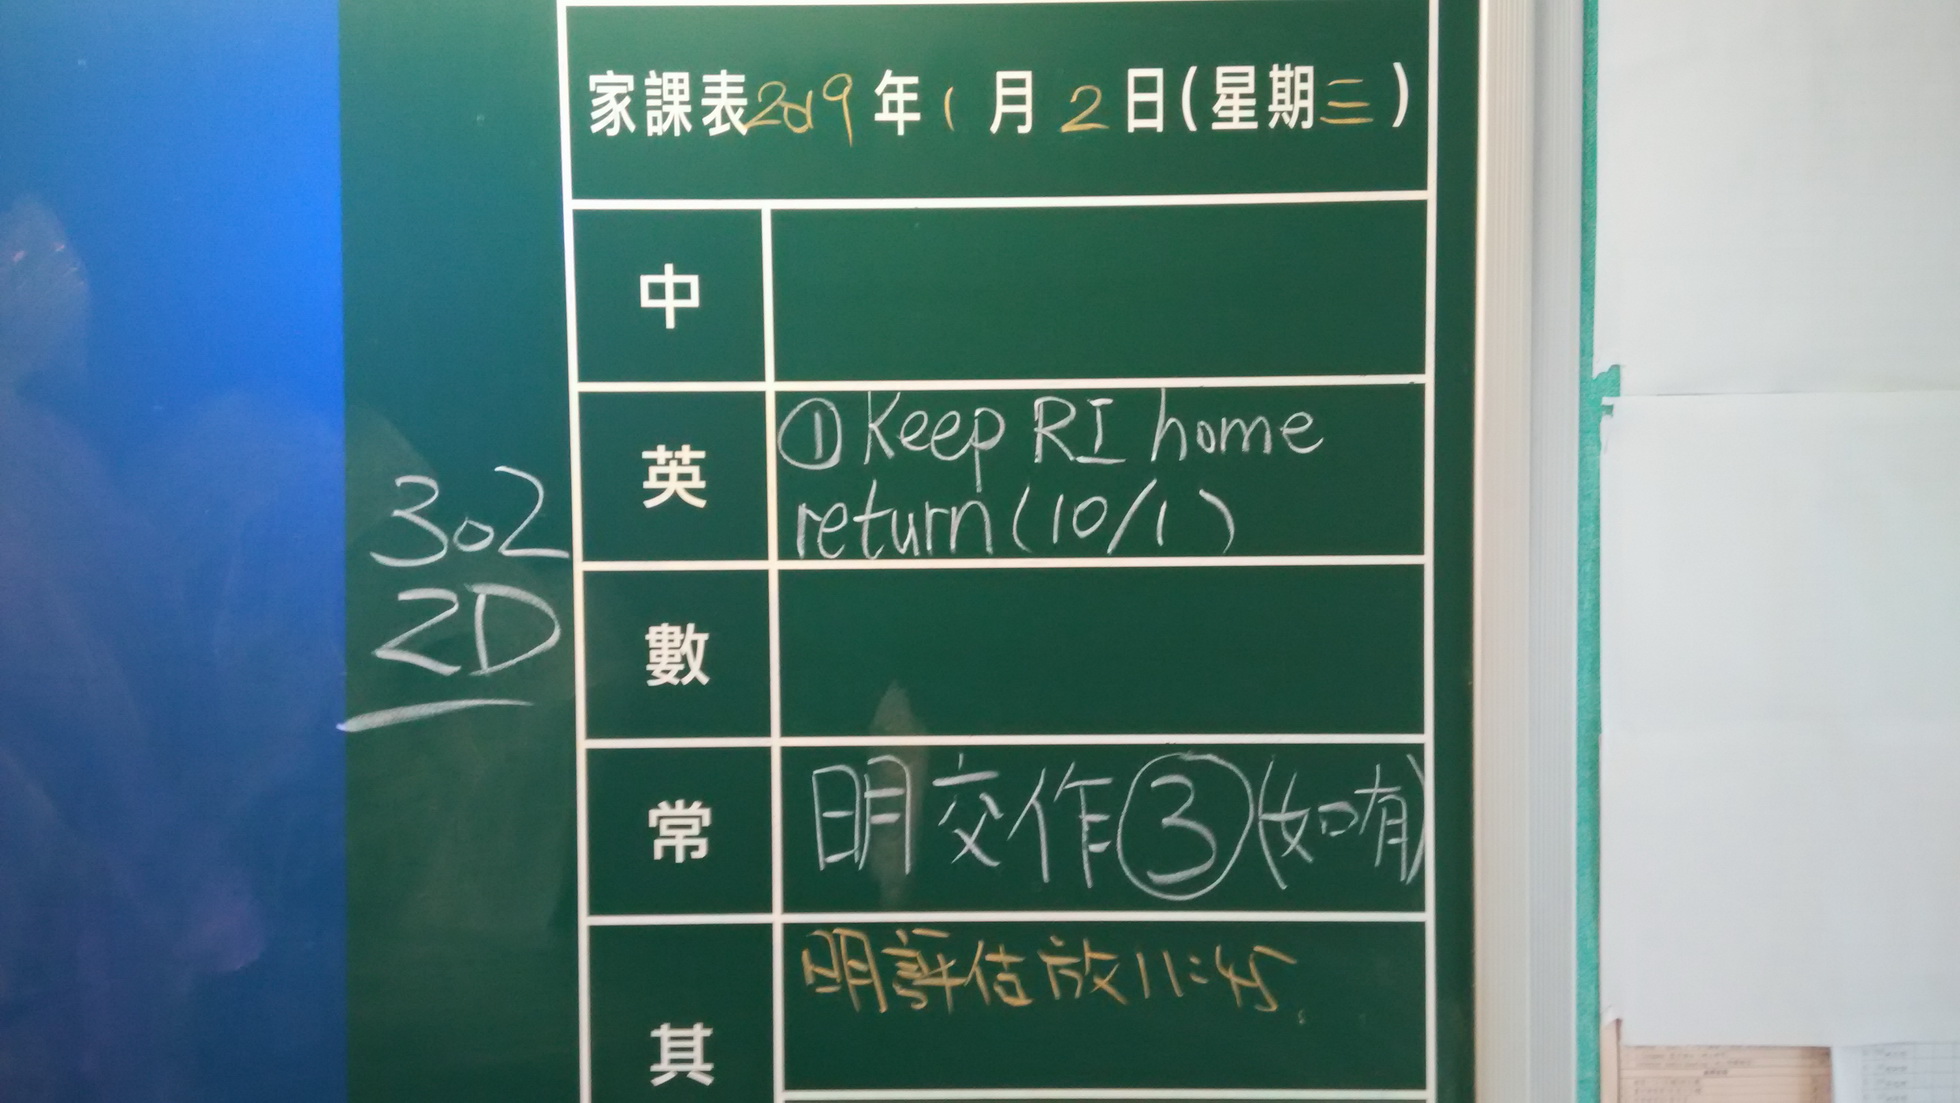 家課表2019年1月2日(星期三)
中
英
①Keep RI home
return(10/1)
302
2D
數
常
明交作③(如有)
其
明評估放11:45